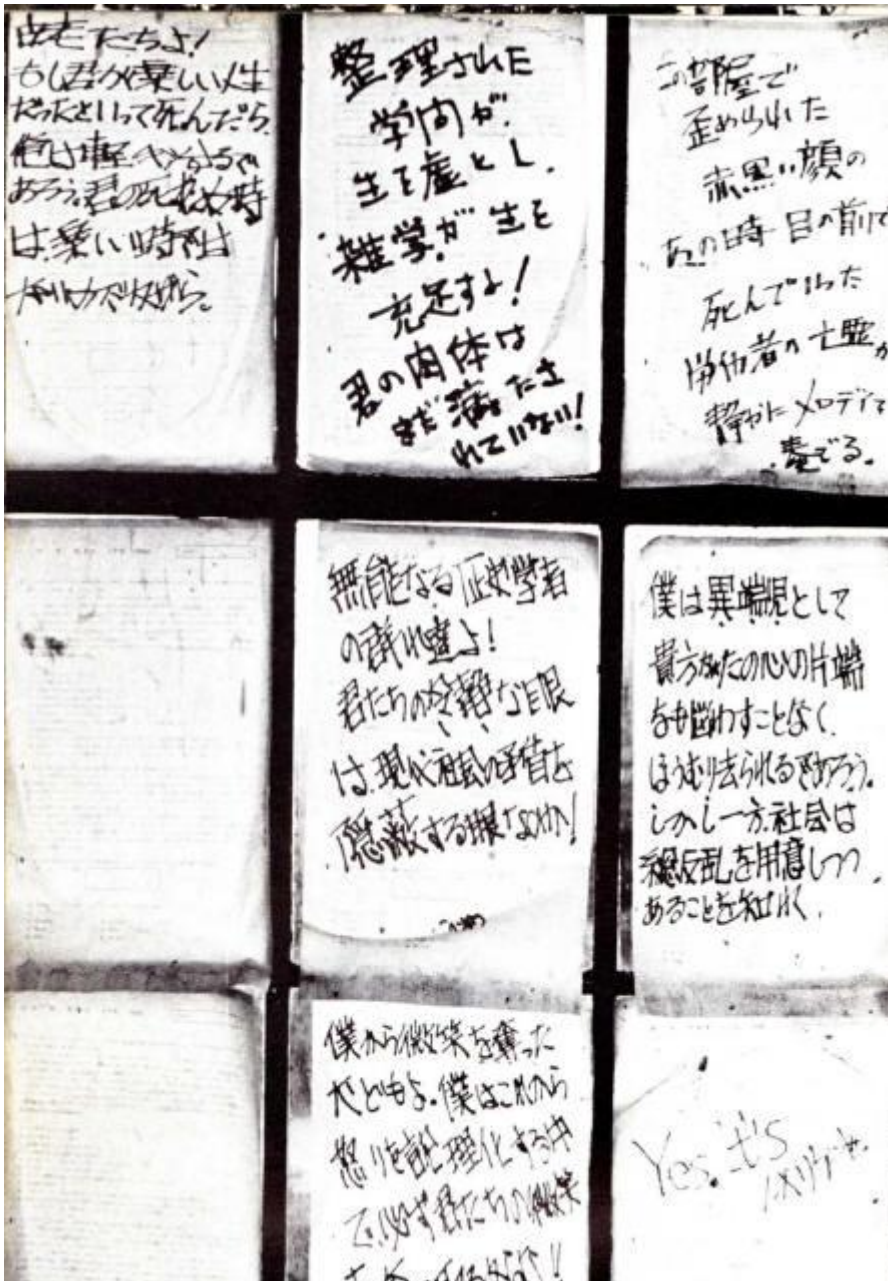 たちよ!
もし君が楽しい人生
だったといって死んだら
俺は軽べつするで
あろう。君の死
は、楽しい時では

整理された
学問が、
生を虚とし、
雑学が生を
充足する!
君の肉体は
まだ満たさ
れていない!
この部屋で
歪められた
赤黒い顔の
あの時目の前で
死んでいった
労働者の亡霊が
静かにメロディを
奏でる。
無能なる歴史学者
の群れ達よ!
君たちの冷静な目眼
は、現代社会の矛盾を
隠蔽する眼なのか!
僕は異端児として
貴方がたの心の片端
をも悩わすことなく
ほうむり去られるであろう。
しかし一方、社会は
総反乱を用意しつつ
あることを知れ
僕から微笑を奪った
犬どもよ。僕はこれから
怒りを論理化する中
で、必ず君たちの微笑
Yes. it's